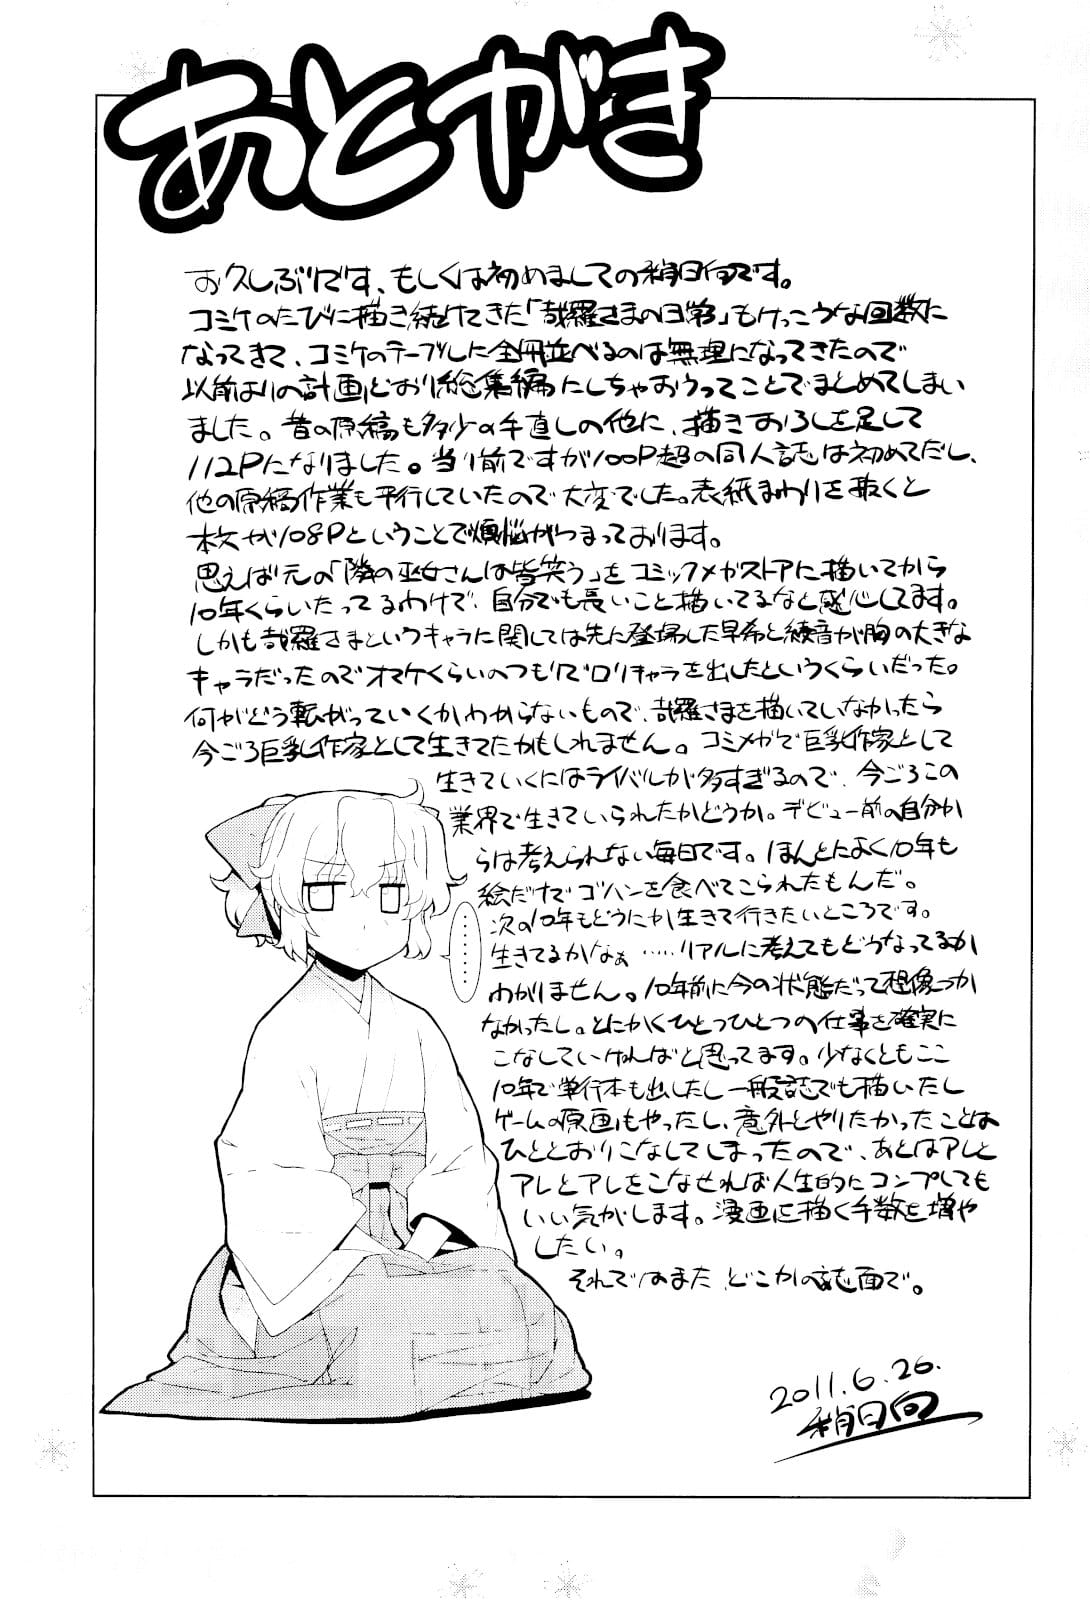 あとがき
お久しぶりです、もしくは初めましての稍日向です。
コミケのたびに描き続けてきた「哉羅さまの日常」もけっこうな回数に
なってきて、コミケのテーブルした全冊並べるのは無理になってきたので
以前よりの計画どおり総集編にしちゃおうってことでまとめてしまい
ました。昔の原稿も多少の手直しの他に、描きおろしを足して
112Pになりました。当り前ですが100P超の同人誌は初めてだし、
他の原稿作業も平行していたので大変でした。表紙まわりを抜くと
本文が108Pということで煩悩がつまっております。
思えば元の「隣の巫女さんは皆笑う」をコミックメガストアに描いてから
10年くらいたってるわけで、自分でも長いこと描いてるなと感心してます。
しかも哉羅さまというキャラに関しては先に登場した早希と綾音が胸の大きな
キャラだったのでオマケくらいのつもりでロリキャラを出したというくらいだった。
何がどう転がっていくかわからないもので、哉羅さまを描いていなかったら
今ごろ巨乳作家として生きてたかもしれません。コミメガで巨乳作家として
生きていくにはライバルが多すぎるので、今ごろこの
業界で生きていられたかどうか。デビュー前の自分か
らは考えられない毎日です。ほんとによく10年も
絵だけでゴハンを食べてこられたもんだ。
次の10年もどうにか生きて行きたいところです。
生きてるかなぁ……リアルに考えてもどうなってるか
わかりません。10年前に今の状態だって想像つか
なかったし。とにかくひとつひとつの仕事を確実に
こなしていければと思ってます。少なくともここ
10年で単行本も出したし一般誌でも描いたし
ゲームの原画もやったし、意外とやりたかったことは
ひととおりこなしてしまったので、あとはアレと
アレとアレをこなせれば人生的にコンプしても
いい気がします。漫画に描く手数を増や
したい。
それではまた、どこかの誌面で。
…………
2011.6.26.
稍日向